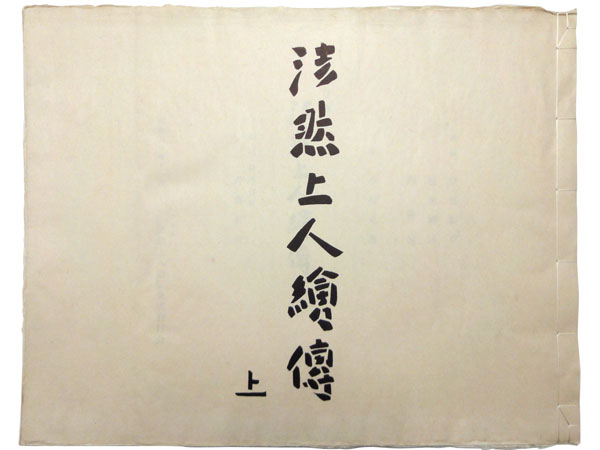 法然上人繪傳
上